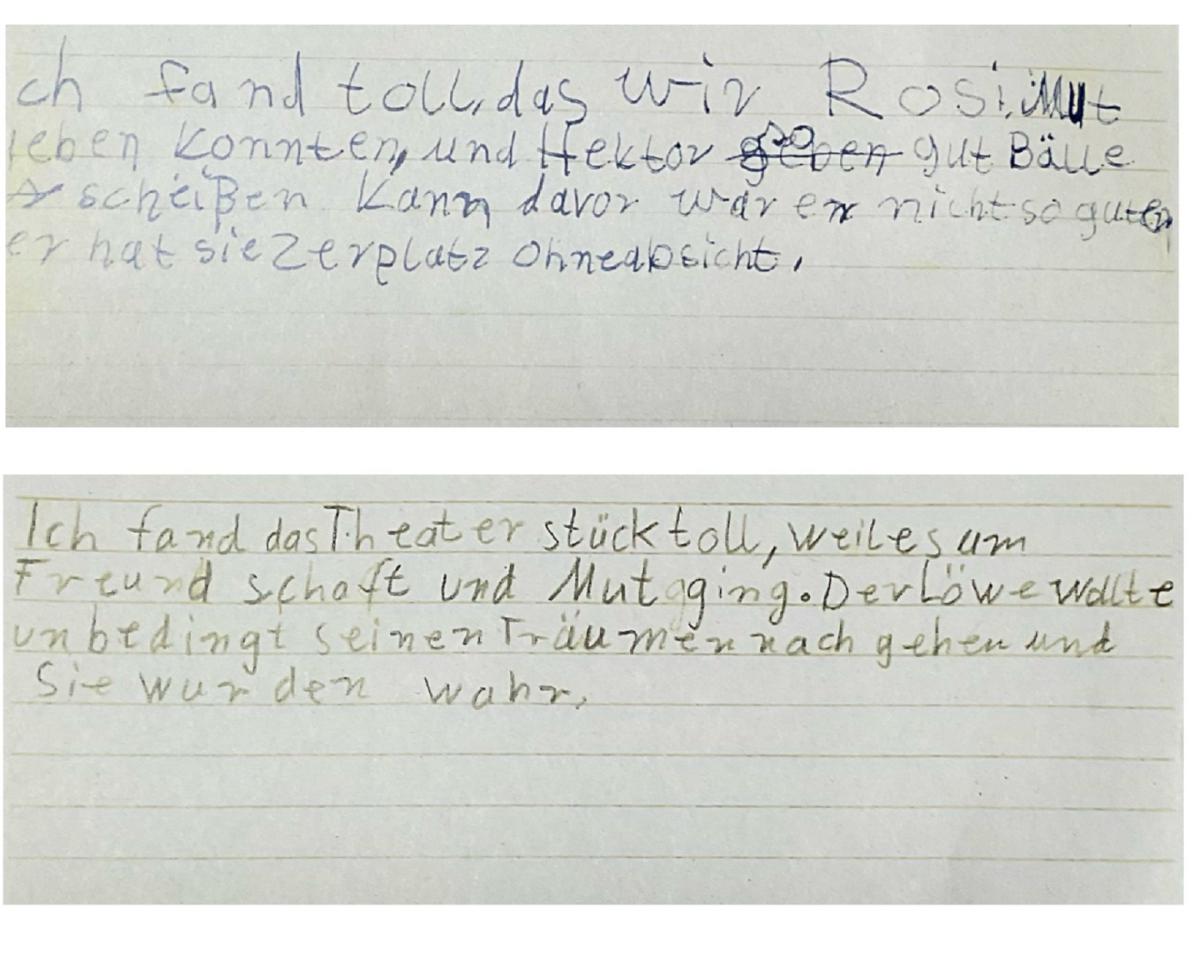 ch fand toll, das wir Rosi Mut
eben konnten, und Hektor so gut Bälle
scheißen kann, davor war er nicht so gut
er hat sie zerplatz ohneabsicht.
Ich fand das Theater stück toll, weil es um
Freund schaft und Mut ging. Der Löwe wollte
unbedingt seinen Träumen nach gehen und
Sie wurden wahr.